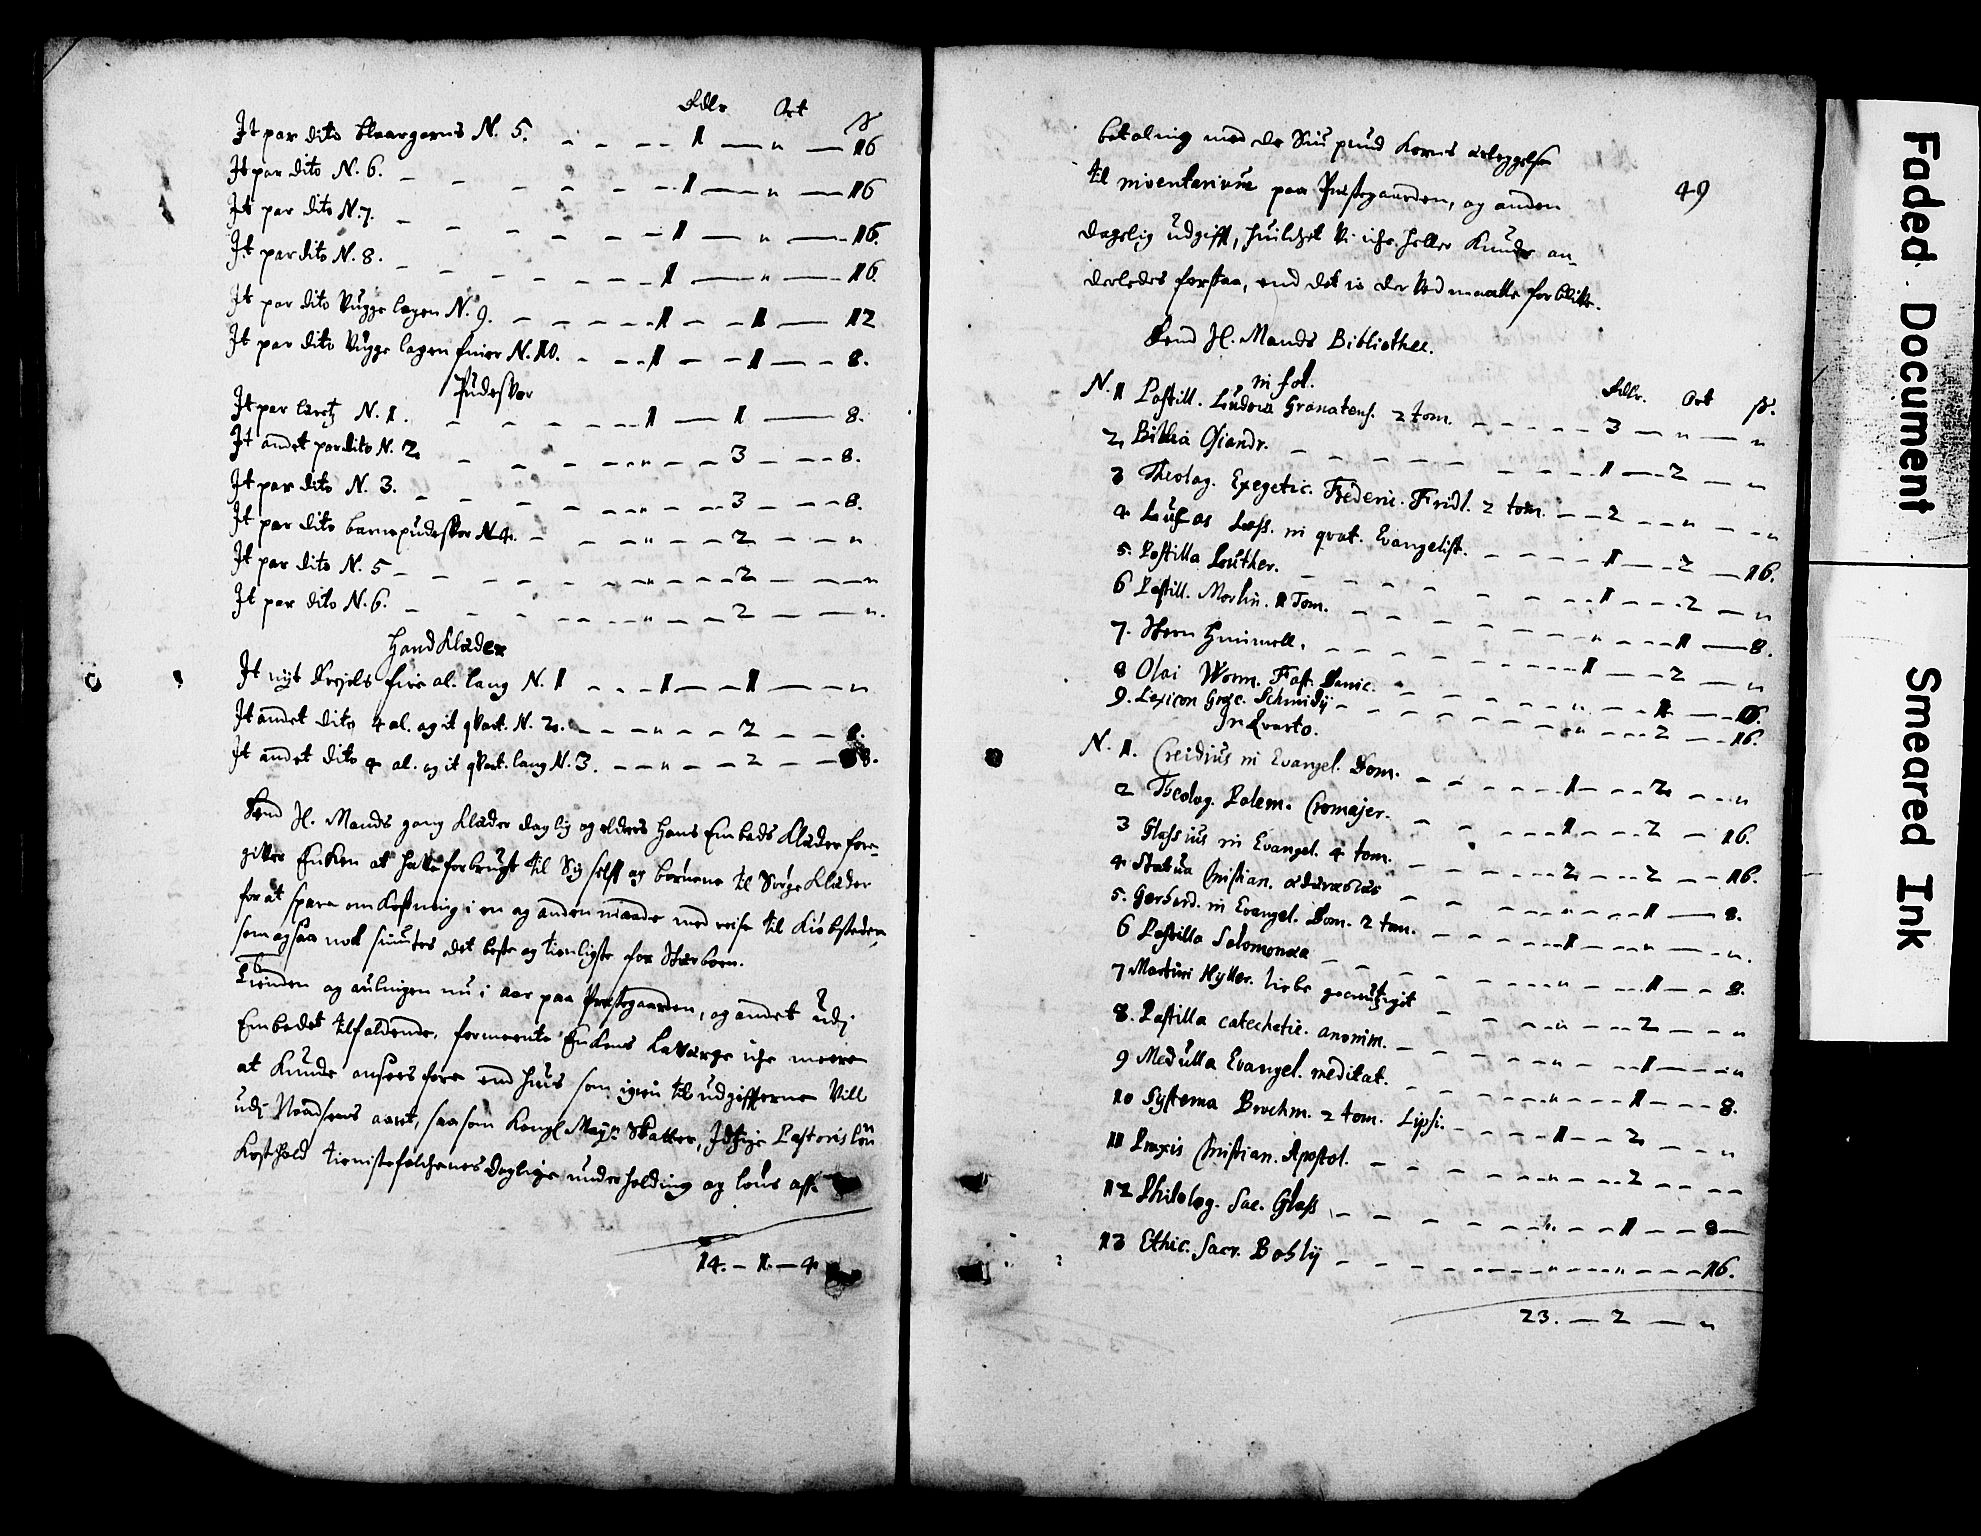 Rdlr Ort ß
It par dito blaargarns N. 5. - - - - 1 — " — 16
It par dito N. 6. - - - - - - 1 — " — 16
It par dito N. 7. - - - - - - 1 — " — 16.
It par dito N. 8. - - - - - - 1 — " — 16.
It par dito Vugge lagen N. 9. - - - - 1 — 1 — 12
It par dito Vugge lagen finer N. 10. - - - 1 — 1 — 8.
Pudeskor
It par N. 1. - - - - - 1 — 1 — 8.
It andet par dito N. 2. - - - - " - - 3 - - 8.
It par dito N. 3. - - - - - " - - 3 - - 8.
It par dito barnepudeskor N. 4. - - - " - - 2 - - "
It par dito N. 5 - - - - - " - - 2 - - "
It par dito N. 6. - - - - - " - - 2 - - ".
Handklæder
It nyt Drejels fire al. lang N. 1 - - - 1 — 1 — "
It andet dito 4 al. og it qvart. N. 2. - - - " - - 2 - - 8.
It andet dito 4 al. og it qvart. lang N. 3. - - " - - 2 - - 8.
Send Hl. Mands gang Klæder daglig og elders hans Embeds Klæder fore-
giver Enken at hafve forbrugt til Sig self og børnene til Sørge Klæder
for at spare omkostning i en og anden maade med reise til Kiøbsteden,
som ogsaa nok siuntes det beste og tienligste for Stærboen.
Tienden og aulingen nu i aar paa Præstegaarden, og andet udj
Embedet tilfaldende, formeente Enkens Laværge iche meere
at kunde ansees fore end huus som igien til udgifterne Vill
udj Naadsens aaret, saasom Kongl. Mayts. Skatter, Pastoris løn
Kosthold tienistefolchenes Daglige underholding og løns aff-
14. — 1. — 4
49
betaling med de Siu pund Korns erleggelse
til inventarium paa Præstegaarden, og anden
dagelig udgifft, huilchet Vi iche heller Kunde an-
derledes forstaa, end det io der Ved maatte forblifve.
Send Hl. Mands Bibliothec.
in fol. Rdlr. Ort ß.
N. 1 Postill. Ludov. Granatens. 2 tom. - - - - - 3 — " — "
2. Biblia Osiandr. - - - - - - - 1 — 2 — "
3 Theolog. Exegetic. Frideric. Fridl. 2 tom. - - 2 - - " - - "
4 Lucas Loss. in qvat. Evangelist. - - - - 1 — 2 — 16.
5. Postilla Luther. - - - - - - - 1 - - 2 — "
6 Postill. Morlin. 1 Tom. - - - - - - " - - 1 — 8.
7. Stern Himmell. - - - - - - - 1 — 2 — "
8 Olai Worm. Fast. Danic. - - - - - - " - - 1 — 16.
9. Lexicon Græc. Schmidij - - - - - - " - - 2 - - 16.
In Qvarto.
N. 1. Creidius in Evangel. Dom. - - - - 1 — 2 - - "
2 Theolog. Polem. Cromajer. - - - - 1 - - 2 - 16.
3 Glassius in Evangel. 4 tom. - - - - 2 - - 2 - - 16.
4 Statua Christian. - - - - " - - 1 — 8.
5. Gerhard. in Evangel. Dom. 2 tom. - - - - 1 - - " - - ".
6 Postilla Salomonæa - - - - - - " - - 1 - - 8.
7 Martini Hyller. - - - - " - - 2 - - "
8. Postilla catechetic. anonim. - - - - - " - - 1 - - "
9 Medulla Evangel. meditat. - - - - - " - - 1 - - 8.
10 Systema Brochm. 2 tom. Lipsi. - - - - 1 - - 2 - - "
11 Praxis Christian. Apostol. - - - - - " - - 2 - - -
12 Philolog. Sac. Glass - - - - - - " - - 1 - - 8 —
13 Ethic. Sacr. Bohlij - - - - - - " - - " - - 16.
23. — 2 — "
Faded Document
Smeared Ink